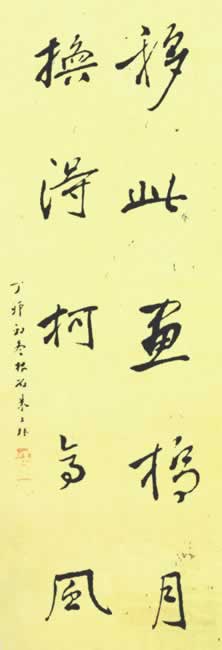 移此畫橋月
換得柯亭風
丁卯初冬